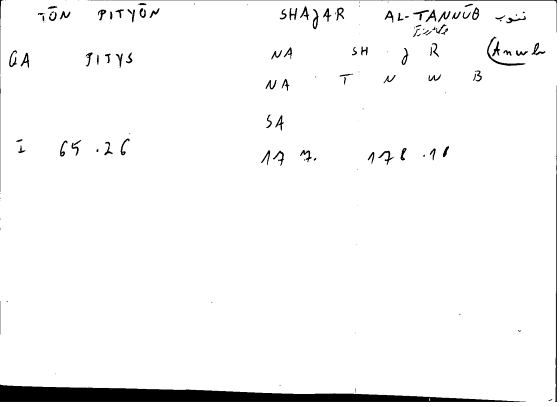 TŌN PITYŌN SHAJAR AL-TANNŪB تنوب
GA PITYS NA SH J R
NA T N W B
SA
I 65.26 17 7. 178.18